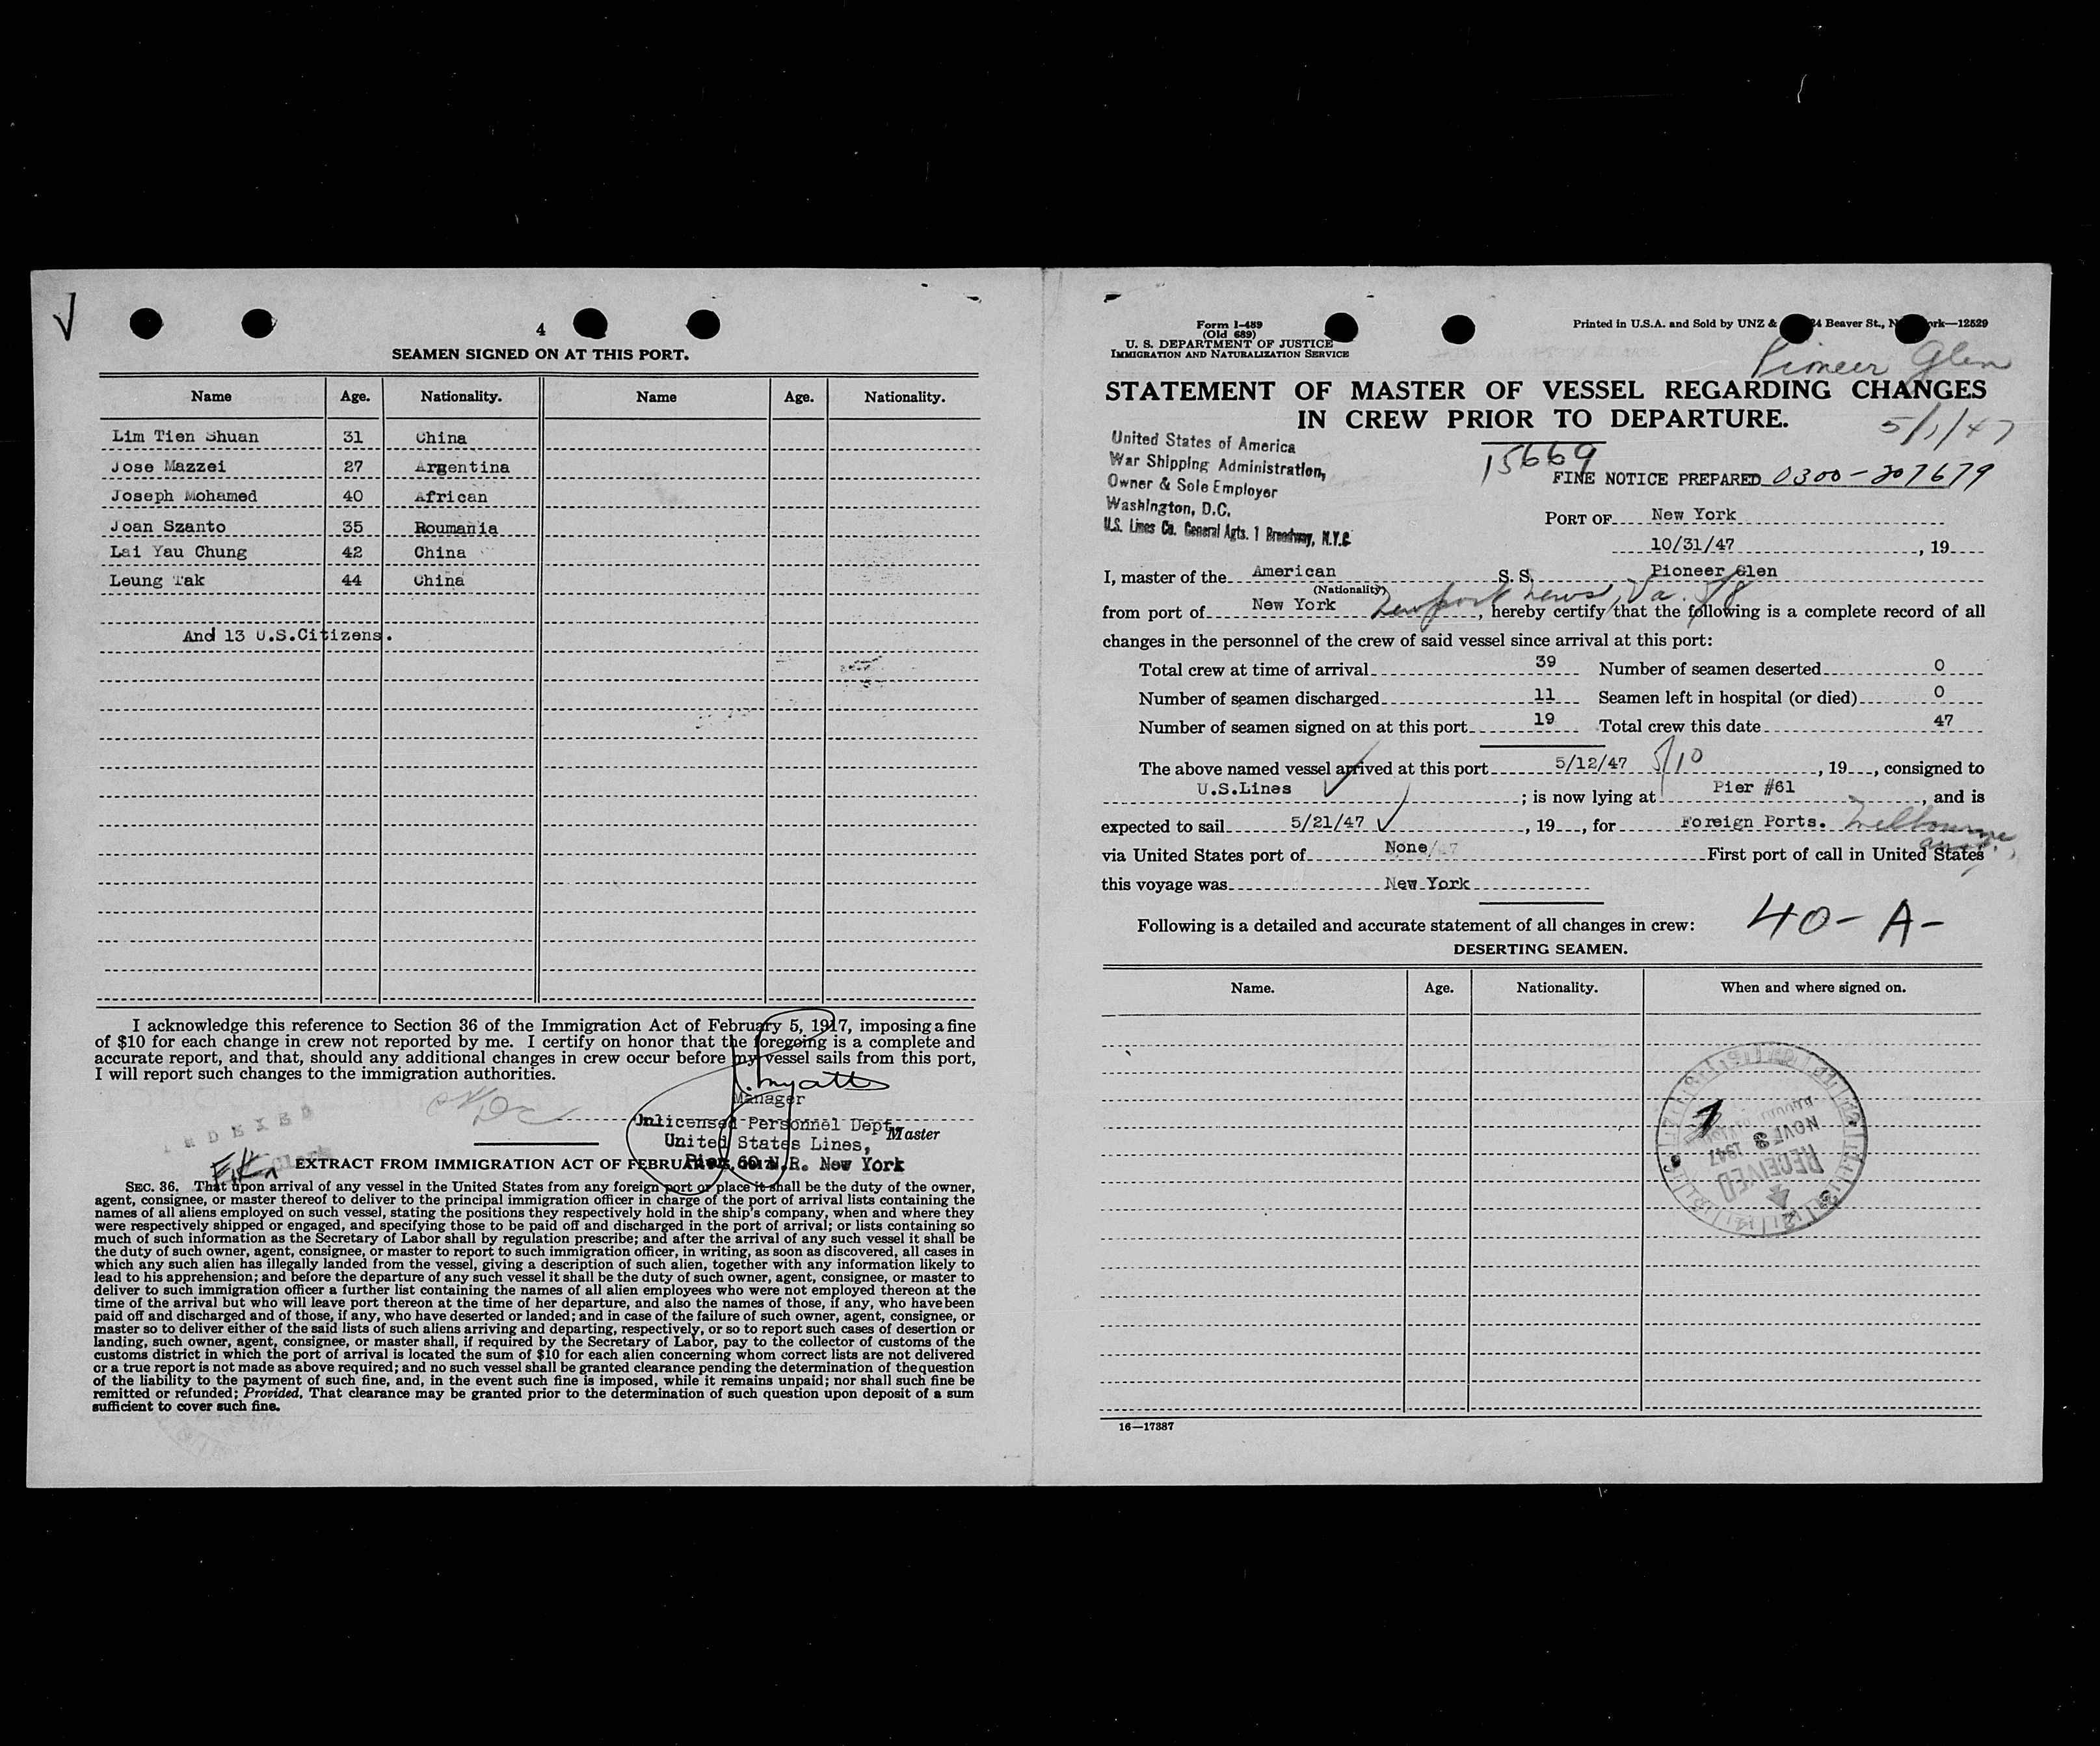 4
SEAMEN SIGNED ON AT THIS PORT.
Name Age. Nationality. Name Age. Nationality.
Lim Tien Shuan 31 China
Jose Mazzei 27 Argentina
Joseph Mohamed 40 African
Joan Szanto 35 Roumania
Lai Yau Chung 42 China
Leung Tak 44 China
And 13 U.S.Citizens.
I acknowledge this reference to Section 36 of the Immigration Act of February 5, 1917, imposing a fine
of $10 for each change in crew not reported by me. I certify on honor that the foregoing is a complete and
accurate report, and that, should any additional changes in crew occur before my vessel sails from this port,
I will report such changes to the immigration authorities.
Manager
Unlicensed Personnel Dept.
Master
United States Lines,
Pier 60 N.R. New York
INDEXED
EXTRACT FROM IMMIGRATION ACT OF FEBRUARY 5, 1917
SEC. 36. That upon arrival of any vessel in the United States from any foreign port or place it shall be the duty of the owner,
agent, consignee, or master thereof to deliver to the principal immigration officer in charge of the port of arrival lists containing the
names of all aliens employed on such vessel, stating the positions they respectively hold in the ship's company, when and where they
were respectively shipped or engaged, and specifying those to be paid off and discharged in the port of arrival; or lists containing so
much of such information as the Secretary of Labor shall by regulation prescribe; and after the arrival of any such vessel it shall be
the duty of such owner, agent, consignee, or master to report to such immigration officer, in writing, as soon as discovered, all cases in
which any such alien has illegally landed from the vessel, giving a description of such alien, together with any information likely to
lead to his apprehension; and before the departure of any such vessel it shall be the duty of such owner, agent, consignee, or master to
deliver to such immigration officer a further list containing the names of all alien employees who were not employed thereon at the
time of the arrival but who will leave port thereon at the time of her departure, and also the names of those, if any, who have been
paid off and discharged and of those, if any, who have deserted or landed; and in case of the failure of such owner, agent, consignee, or
master so to deliver either of the said lists of such aliens arriving and departing, respectively, or so to report such cases of desertion or
landing, such owner, agent, consignee, or master shall, if required by the Secretary of Labor, pay to the collector of customs of the
customs district in which the port of arrival is located the sum of $10 for each alien concerning whom correct lists are not delivered
or a true report is not made as above required; and no such vessel shall be granted clearance pending the determination of the question
of the liability to the payment of such fine, and, in the event such fine is imposed, while it remains unpaid; nor shall such fine be
remitted or refunded; Provided, That clearance may be granted prior to the determination of such question upon deposit of a sum
sufficient to cover such fine.
Form I-489
(Old 689)
U. S. DEPARTMENT OF JUSTICE
IMMIGRATION AND NATURALIZATION SERVICE
Printed in U.S.A. and Sold by UNZ & 24 Beaver St., N rk—12529
Pioneer Glen
STATEMENT OF MASTER OF VESSEL REGARDING CHANGES
IN CREW PRIOR TO DEPARTURE.
5/1/47
United States of America
War Shipping Administration,
Owner & Sole Employer
Washington, D.C.
U.S. Lines Co. General Agts. 1 Broadway, N.Y.C.
15669
FINE NOTICE PREPARED 0300-207679
PORT OF New York
10/31/47, 19
I, master of the American S. S. Pioneer Glen
(Nationality)
from port of New York Newport News, Va. 5/8, hereby certify that the following is a complete record of all
changes in the personnel of the crew of said vessel since arrival at this port:
Total crew at time of arrival 39 Number of seamen deserted 0
Number of seamen discharged 11 Seamen left in hospital (or died) 0
Number of seamen signed on at this port 19 Total crew this date 47
The above named vessel arrived at this port 5/12/47 5/10, 19, consigned to
U.S.Lines; is now lying at Pier #61, and is
expected to sail 5/21/47, 19, for Foreign Ports. Melbourne
via United States port of None First port of call in United States
this voyage was New York
Following is a detailed and accurate statement of all changes in crew:
40-A-
DESERTING SEAMEN.
Name. Age. Nationality. When and where signed on.
RECEIVED
NOV 3
1947
16—17387